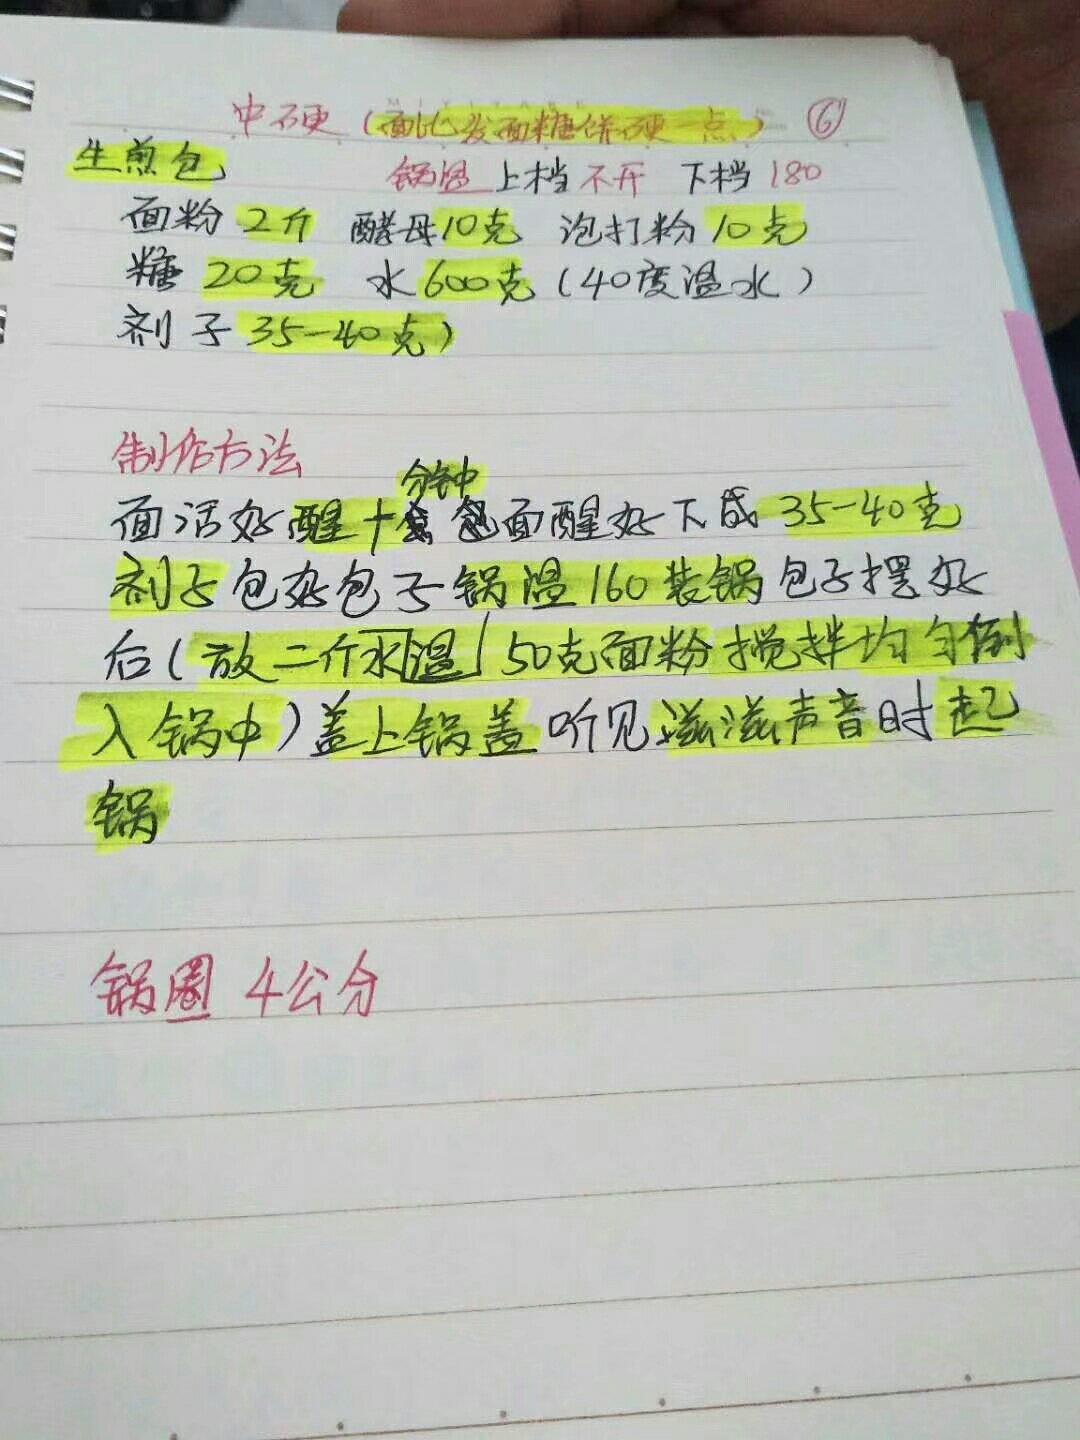 中硬（面比发面糖饼硬一点） ⑥
生煎包 锅温 上档 不开 下档 180
面粉 2斤 酵母10克 泡打粉 10克
糖 20克 水 600克（40度温水）
剂子 35-40克）
制作方法
分钟
面活好醒十 面醒好下成 35-40克
剂子包好包子锅温160装锅包子摆好
后（放二斤水温 50克面粉搅拌均匀倒
入锅中）盖上锅盖听见滋滋声音时起
锅
锅圈 4公分